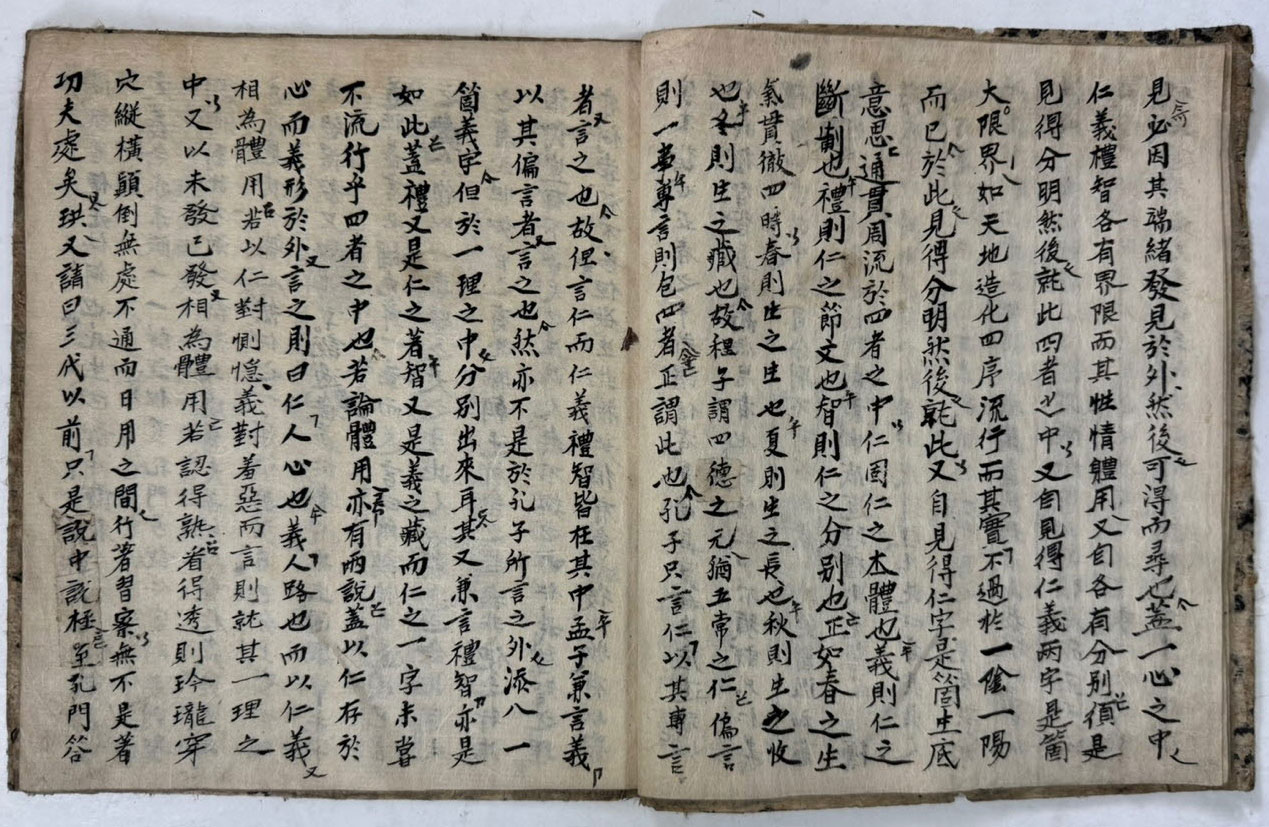 見必因其端緒發見於外然後可得而尋也盖一心之中
仁義禮智各有界限而其性情體用又自各有分別須是
見得分明然後就此四者之中又自見得仁義兩字是箇
大限界如天地造化四序流行而其實不過於一陰一陽
而已於此見得分明然後就此又自見得仁字是箇生底
意思通貫周流於四者之中仁固仁之本體也義則仁之
斷制也禮則仁之節文也智則仁之分別也正如春之生
氣貫徹四時春則生之生也夏則生之長也秋則生之收
也冬則生之藏也故程子謂四德之元猶五常之仁偏言
則一事專言則包四者正謂此也孔子只言仁以其專言
者言之也故但言仁而仁義禮智皆在其中孟子兼言義
以其偏言者言之也然亦不是於孔子所言之外添八一
箇義字但於一理之中分別出來耳其又兼言禮智亦是
如此蓋禮又是仁之著智又是義之藏而仁之一字未嘗
不流行乎四者之中也若論體用亦有兩說蓋以仁存於
心而義形於外言之則曰仁人心也義人路也而以仁義
相為體用若以仁對惻隱義對羞惡而言則就其一理之
中又以未發已發相為體用若認得熟看得透則玲瓏穿
穴縱橫顚倒無處不通而日用之間行著習察無不是著
功夫處矣珙又請曰三代以前只是說中說極至孔門答